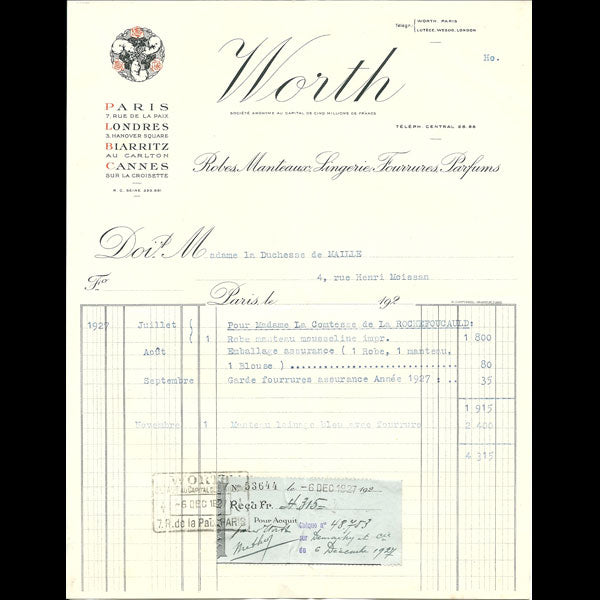 Télégr: WORTH. PARIS
LUTÈCE, WESDO, LONDON
Worth
No.
SOCIÉTÉ ANONYME AU CAPITAL DE CINQ MILLIONS DE FRANCS
TÉLÉPH. CENTRAL
PARIS
7. RUE DE LA PAIX
LONDRES
3. HANOVER SQUARE
BIARRITZ
AU CARLTON
CANNES
SUR LA CROISETTE
R. C. SEINE
Robes, Manteaux, Lingerie, Fourrures, Parfums
Doit Madame la Duchesse de MAILLE
4, rue Henri Moissan
Fo
Paris, le 192
1927 Juillet ( Pour Madame La Comtesse de La ROCHEFOUCAULD:
( 1 Robe manteau mousseline impr. 1 800
Août Emballage assurance ( 1 Robe, 1 manteau,
1 Blouse ) 80
Septembre Garde fourrures assurance Année 1927 : .. 35
1 915
Novembre 1 Manteau lainage bleu avec fourrure 2 400
4 315
WORTH
AU CAPITAL
-6 DEC 192
7. R. de la Paix. PARIS
No 53644 le -6 DEC 1927 192
Reçu Fr. 4.315=
Pour Acquit
Chèque n° 48.753
Worth
sur Demachy et Cie
du 6 Décembre 1927